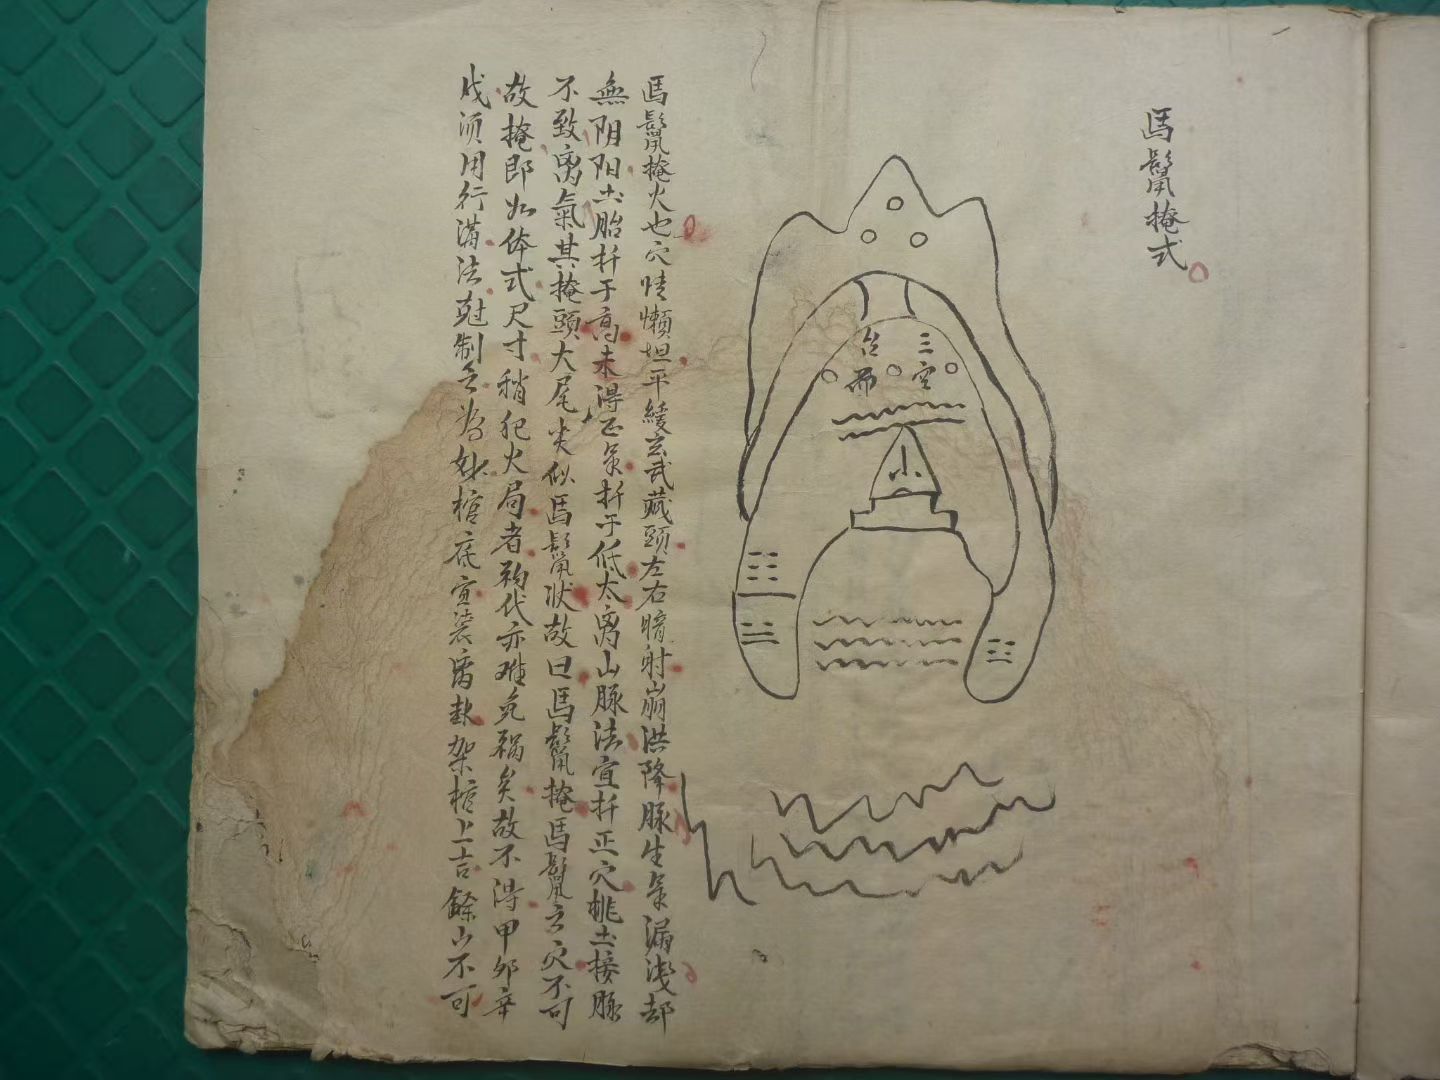 馬鬣掩式
三空
台而
小
馬鬣掩火也穴情懒坦平緩玄武藏頭左右暗射崩洪降脉生氣漏浅却
無阴阳土胎扦于高未得正氣扦于低太离山脉法宜扦正穴挑土接脉
不致离氣其掩頭大尾尖似馬鬣状故曰馬鬣掩馬鬣之穴不可
故掩即如体式尺寸稍犯火局者祠代亦难免祸矣故不得甲卯辛
戌须用行滿法尅制之為妙棺底宜装卦架棺上吉餘山不可